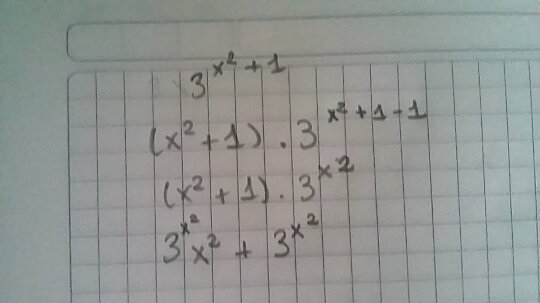 3^{x^2 + 1}
(x^2 + 1) . 3^{x^2 + 1 - 1}
(x^2 + 1) . 3^{x2}
3^{x^2} x^2 + 3^{x^2}